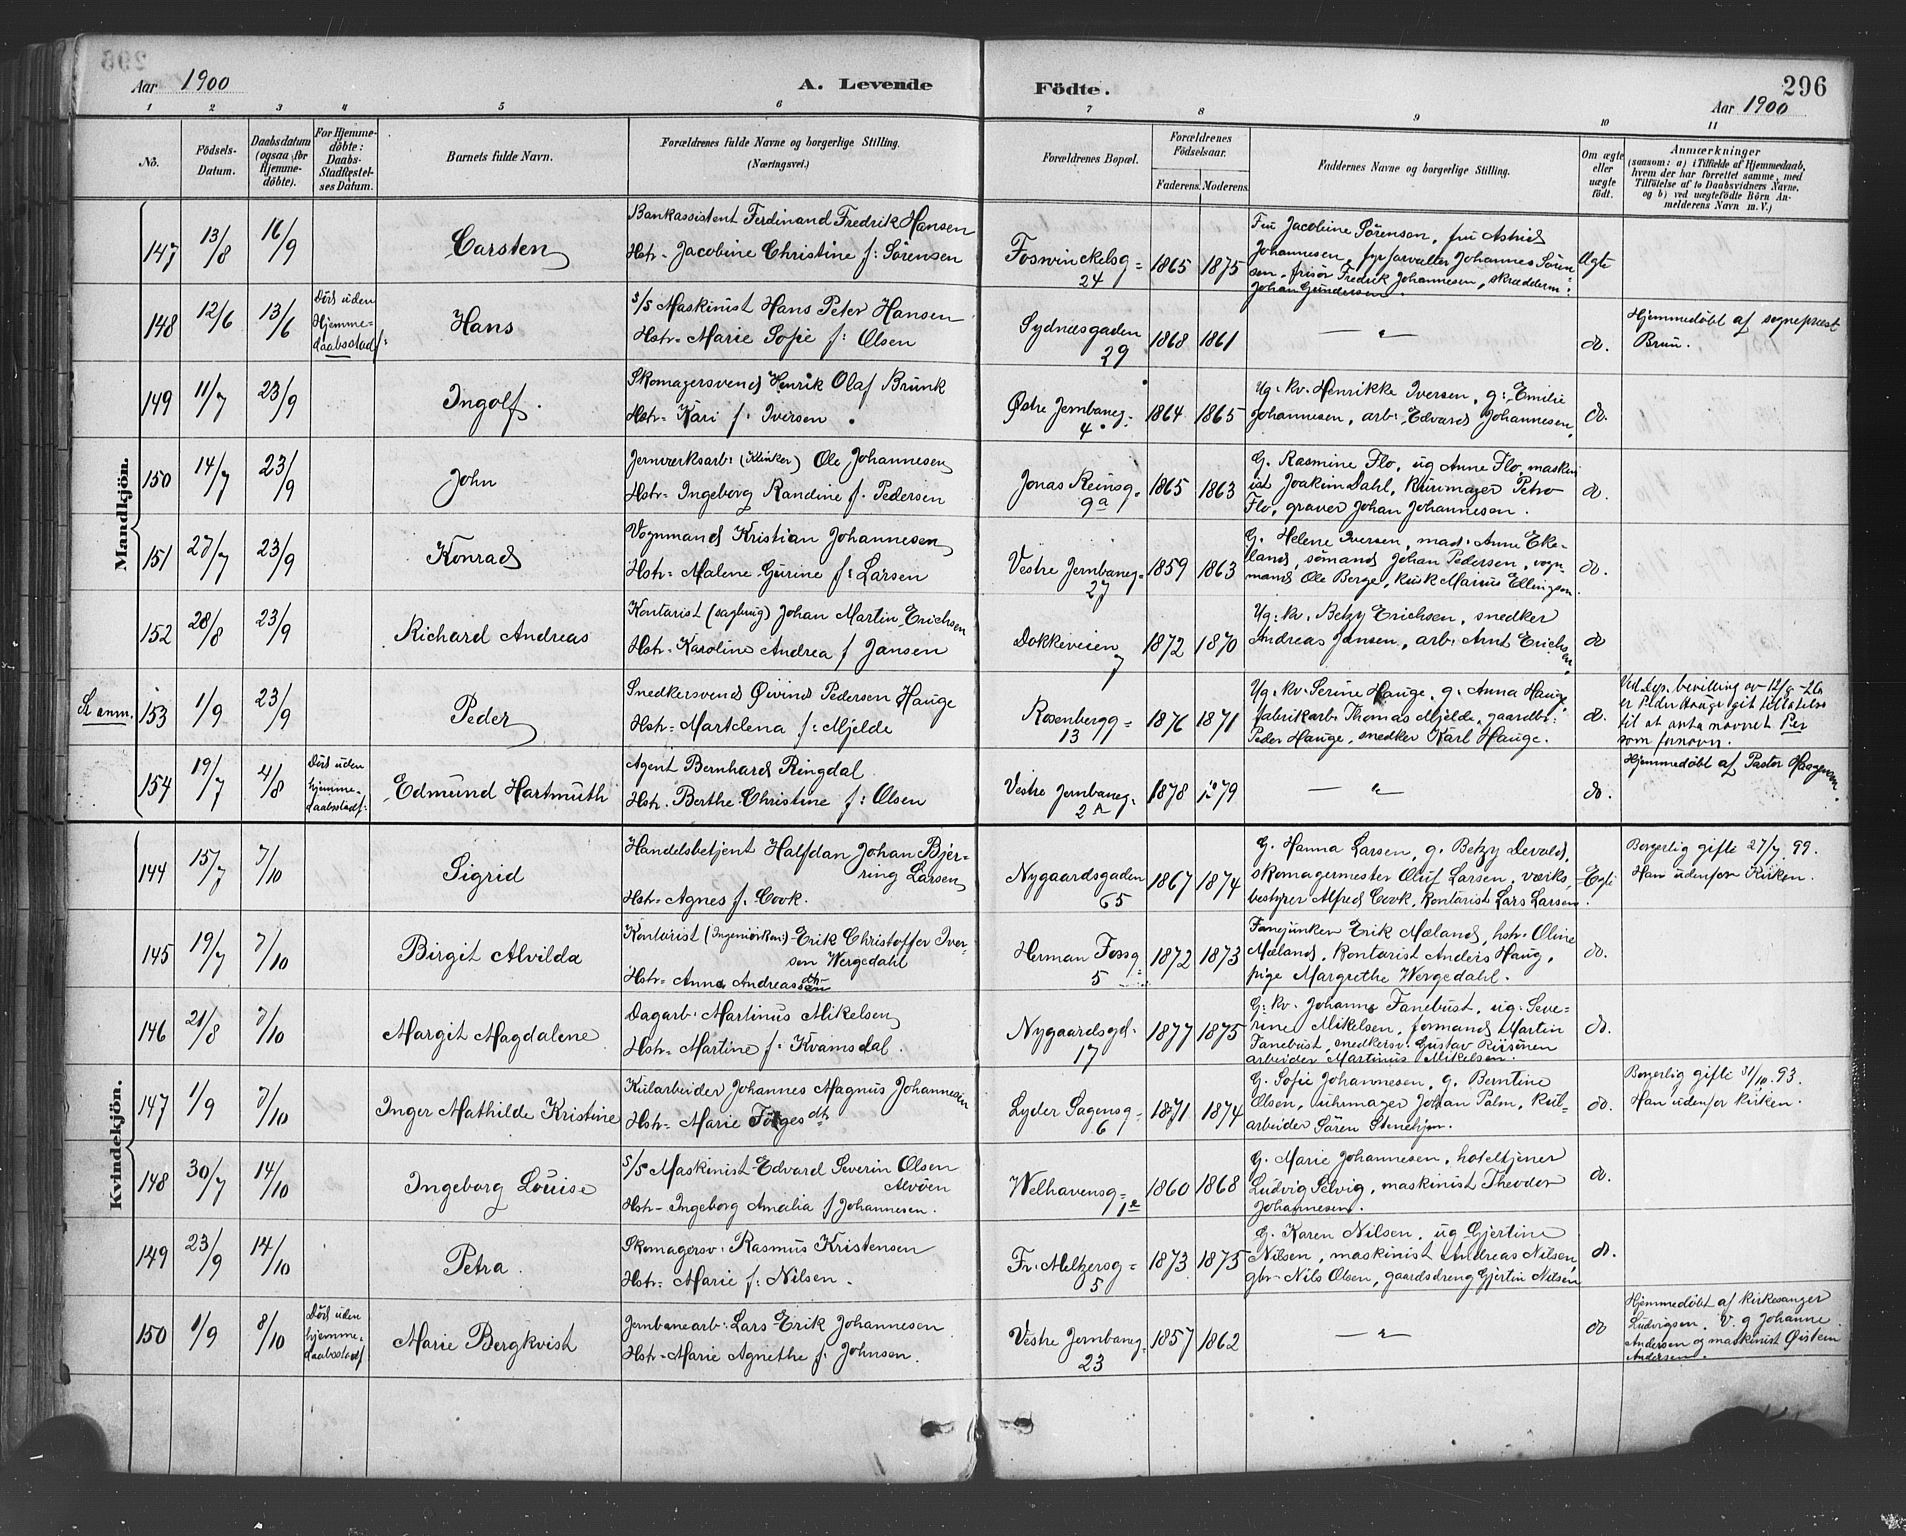 296
Aar 1900
A. Levende Födte.
Aar 1900
1 2 3 4 5 6 7 8 9 10 11
No.
Födsels-Datum.
Daabsdatum (ogsaa for Hjemme-döbte).
For Hjemme-döbte: Daabs-Stadfæstelses Datum.
Barnets fulde Navn.
Forældrenes fulde Navne og borgerlige Stilling. (Næringsvei.)
Forældrenes Bopæl.
Forældrenes Födselsaar.
Faderens.
Moderens.
Faddernes Navne og borgerlige Stilling.
Om ægte eller uægte födt.
Anmærkninger
(saasom: a) i Tilfælde af Hjemmedaab, hvem der har forrettet samme, med Tilföielse af to Daabsvidners Navne, og b) ved uægtefödte Börn Anmelderens Navn m. V.)
Mandkjön.
147 13/8 16/9 Carsten
Bankassistent Ferdinand Fredrik Hansen
Hstr. Jacobine Christine f: Sørensen
Foswinckelsg= 24 1865 1875
Fru Jacobine Sørensen, fru Astrid
Johannesen, fyrforvalter Johannes Søren=
sen, frisør Fredrik Johannesen, skrædderm:
Johan Gundersen.
Ægte
148 12/6 13/6 Død uden Hjemme=daabsstadf: Hans
S/S Maskinist Hans Peter Hansen
Hstr. Marie Sofie f: Olsen
Sydnæsgaden 29 1868 1861
— " —
do.
Hjemmedøbt af sognepræst
Brun.
149 11/7 23/9 Ingolf.
Skomagersvend Henrik Olaf Brunk
Hstr. Kari f. Iversen
Østre Jernbaneg. 4 1864 1865
Ug. kv. Henrikke Iversen, g: Emilie
Johannesen, arb: Edvard Johannesen,
do.
150 14/7 23/9 John
Jernverksarb: (Klinker) Ole Johannesen
Hstr. Ingeborg Randine f. Pedersen
Jonas Reinsg. 9a 1865 1863
G. Rasmine Flo, ug Anne Flo, maskin
ist Joakim Dahl, kurvmager Petro
Flo, graver Johan Johannesen.
do.
151 27/7 23/9 Konrad
Vognmand Kristian Johannesen
Hstr. Malene Gurine f: Larsen
Vestre Jernbaneg= 27 1859 1863
G. Helene Iversen, mad. Anne Eke=
land, sømand Johan Pedersen, vogn
mand Ole Berge, kusk Marius Ellingsen.
do.
152 28/8 23/9 Richard Andreas
Kontorist (sagbrug) Johan Martin Erichsen
Hstr. Karoline Andrea f Jansen
Dokkeveien 7 1872 1870
Ug. kv. Betzy Erichsen, snedker
Andreas Jansen, arb: Arnt Erichsen
do
Se anm. 153 1/9 23/9 Peder
Snedkersvend Øivind Pedersen Hauge
Hstr. Martdena f: Mjelde
Rosenbergg= 13 1876 1871
Ug. kv. Serine Hauge, g. Anna Hauge,
fabrikarb: Thomas Mjelde, gaardbr:
Peder Hauge, snedker Karl Hauge.
do.
Ved Dep. bevilling av 12/8-26
er Peder Hauge git tilladelse
til at anta navnet Per
som fornavn.
154 19/7 4/8 Død uden hjemme=daabsstadf: Edmund Hartmuth
Agent Bernhard Ringdal
Hstr. Berthe Christine f: Olsen
Vestre Jernbaneg. 2A 1878 1879
— " —
do.
Hjemmedøbt af Pastor Haagensen.
Kvindekjön.
144 15/7 7/10 Sigrid
Handelsbetjent Halfdan Johan Bjer=
ring Larsen
Hstr. Agnes f. Cook.
Nygaardsgaden 65 1867 1874
G. Hanna Larsen, g. Betzy Devold,
skomagermester Oluf Larsen, værks
bestyrer Alfred Cook, kontorist Lars Larsen
Egte.
Borgerlig gifte 27/7 99.
Han udenfor Kirken.
145 19/7 7/10 Birgit Alvilda
Kontorist (Ingeniørkon:) Erik Christoffer Iver=
sen Wergedahl
Hstr. Anna Andreasdtr
Herman Fossg= 5 1872 1873
Fanejunker Erik Mæland, hstr. Oline
Mæland, kontorist Anders Haug,
pige Margrethe Wergedahl.
do.
146 21/8 7/10 Margit Magdalene
Dagarb: Martinus Mikelsen
Hstr. Martine f: Kvamsdal.
Nygaardsgd. 17 1877 1875
G. kv. Johanne Fanebust, ug. Seve=
rine Mikelsen, formand Martin
Fanebust, snedkersv. Gustav Riisønen
arbeider Martinus Mikelsen.
do.
147 1/9 7/10 Inger Mathilde Kristine
Kularbeider Johannes Magnus Johannesen
Hstr. Marie Torgesdt
Lyder Sagensg= 6 1871 1874
G. Sofie Johannesen, g. Berntine
Olsen, uhrmager Johan Palm, kul=
arbeider Søren Stenehjem.
do.
Borgerlig gifte 31/10. 93.
Han udenfor kirken.
148 30/7 14/10 Ingeborg Louise
S/S Maskinist Edvard Severin Olsen
Alvøen
Hstr. Ingeborg Amalia f Johannesen.
Welhavensg= 1 1860 1868
G. Marie Johannesen, hoteltjener
Ludvig Selvig, maskinist Theodor
Johannesen.
do.
149 23/9 14/10 Petra.
Skomagersv: Rasmus Kristensen
Hstr. Marie f: Nilsen.
Fr. Meltzersg= 5 1873 1875
G. Karen Nilsen, ug Gjertine
Nilsen, maskinist Andreas Nilsen,
gbr. Nils Olsen, gaardsdreng Gjertin Nilsen
do.
150 1/9 8/10 Død uden hjemme=daabsstadf Marie Bergkvist
Jernbanearb: Lars Erik Johannesen
Hstr. Marie Agnethe f. Johnsen.
Vestre Jernbaneg. 23 1857 1862
— " —
do
Hjemmedøbt af kirkesanger
Ludvigsen. V. g Johanne
Andersen og maskinist Øistein
Andersen.